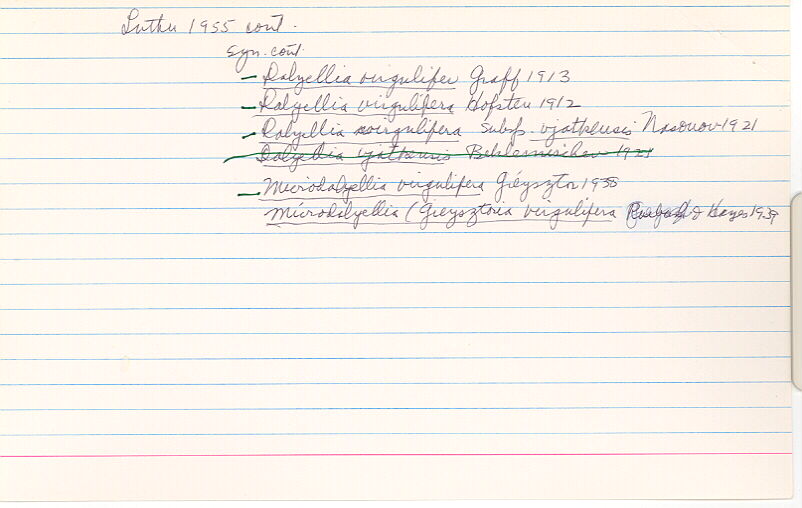 Luther 1955 cont.
Syn. cont.
– Dalyellia virgulifer Graff 1913
– Dalyellia virgulifera Hofsten 1912
– Dalyellia virgulifera subsp. vjatkensis Nasonov 1921
Dalyellia vjatkensis Beklemischev
– Microdalyellia virgulifera Gieysztor 1938
Microdalyellia (Gieysztoria virgulifera & Hayes 1939